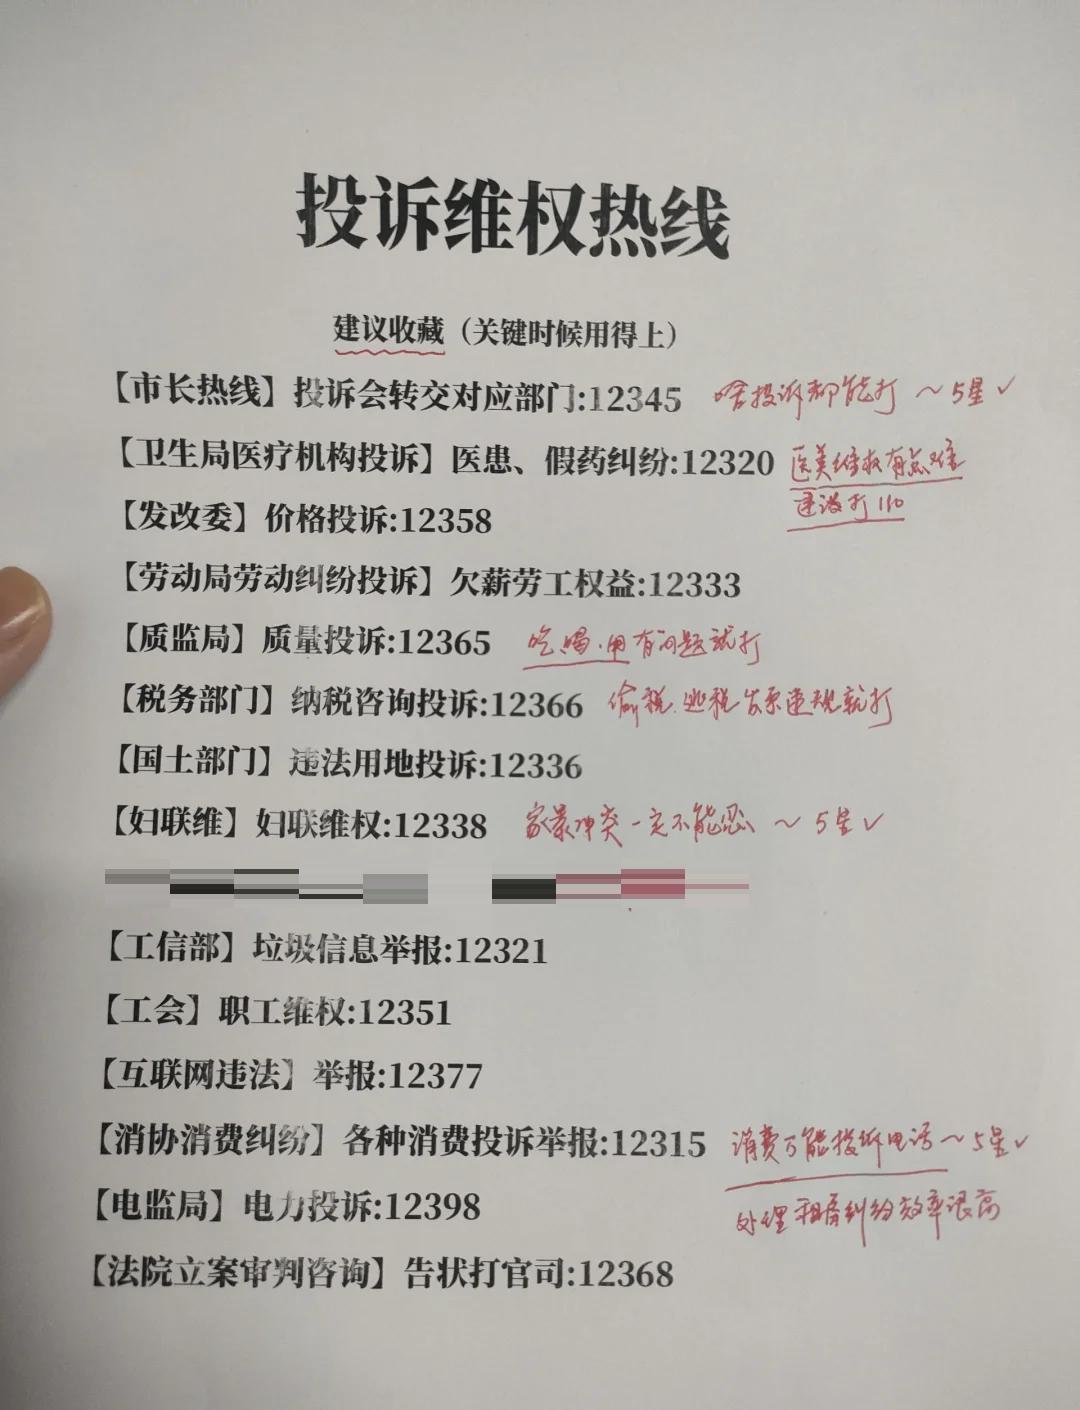 投诉维权热线
建议收藏（关键时候用得上）
【市长热线】投诉会转交对应部门:12345 啥投诉都能打～5星✓
【卫生局医疗机构投诉】医患、假药纠纷:12320 医美维权有点难
建议打110
【发改委】价格投诉:12358
【劳动局劳动纠纷投诉】欠薪劳工权益:12333
【质监局】质量投诉:12365 吃.喝.用有问题就打
【税务部门】纳税咨询投诉:12366 偷税.逃税发票违规就打
【国土部门】违法用地投诉:12336
【妇联维】妇联维权:12338 家暴冲突一定不能忍～5星✓
【工信部】垃圾信息举报:12321
【工会】职工维权:12351
【互联网违法】举报:12377
【消协消费纠纷】各种消费投诉举报:12315 消费万能投诉电话～5星✓
处理租房纠纷效率很高
【电监局】电力投诉:12398
【法院立案审判咨询】告状打官司:12368